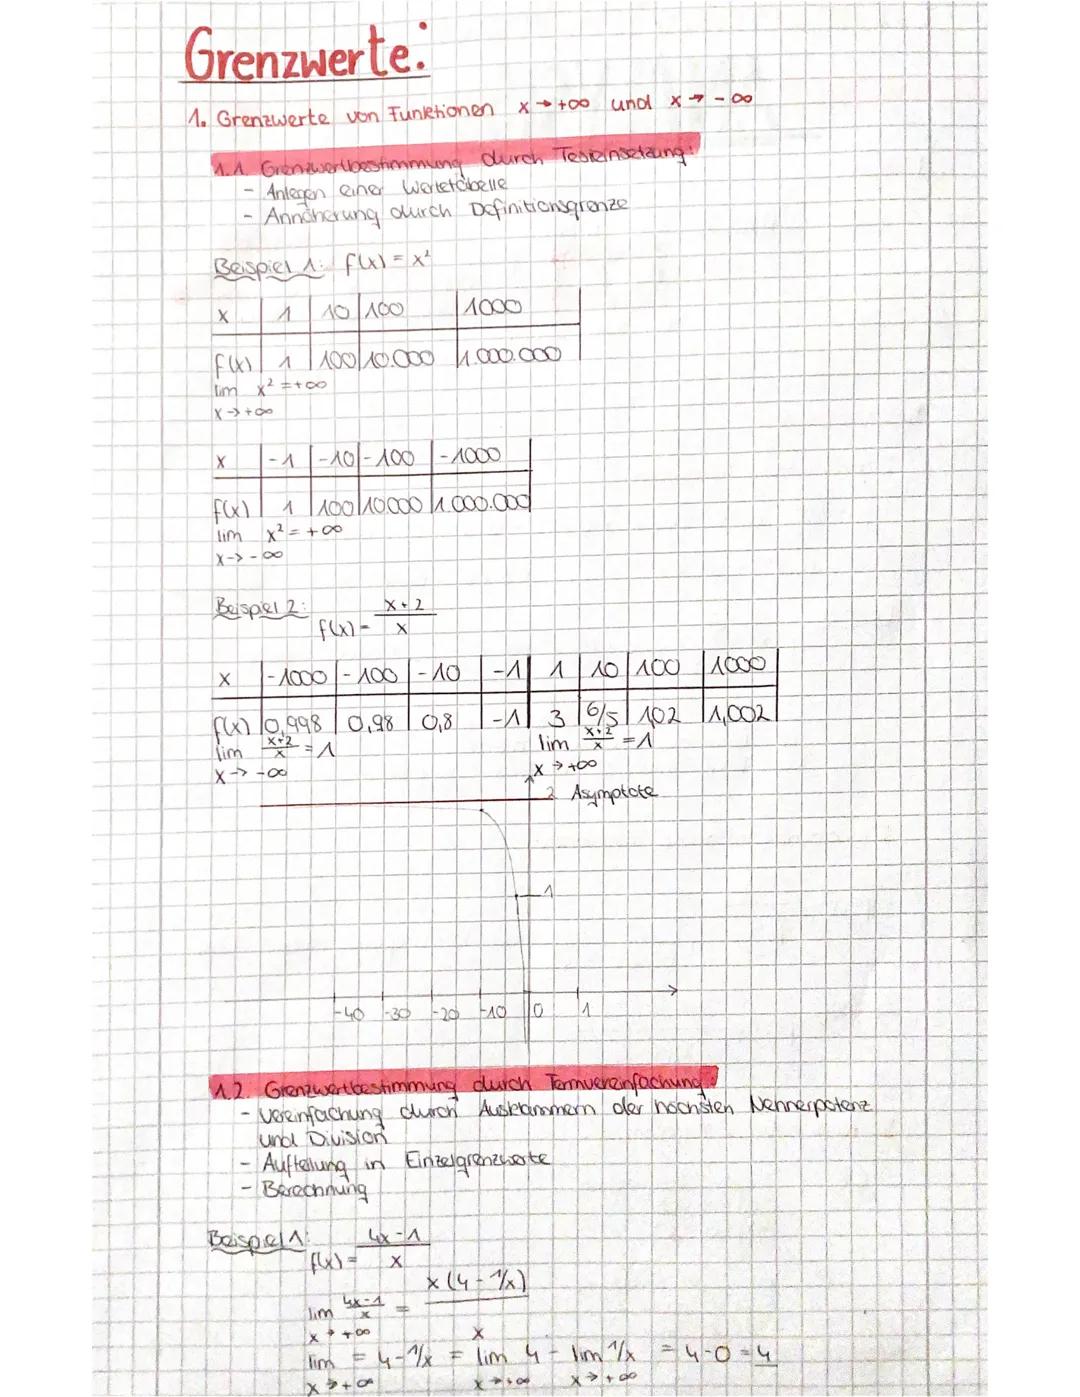 Grenzwerte:
1. Grenzwerte von Funktionen x→+∞ und x→-∞
1.1. Grenzwertbestimmung durch Testeinsetzung:
- Anlegen einer Wertetabelle
- Annäherung durch Definitionsgrenze
Beispiel 1: f(x) = x²
x | 1 | 10 | 100 | 1000
f(x) | 1 | 100 | 10.000 | 1.000.000
lim x² = +∞
x→+∞
x | -1 | -10 | -100 | -1000
f(x) | 1 | 100 | 10000 | 1.000.000
lim x² = +∞
x→-∞
Beispiel 2: f(x) = (x+2)/x
x | -1000 | -100 | -10 | -1 | 1 | 10 | 100 | 1000
f(x) | 0,998 | 0,98 | 0,8 | -1 | 3 | 6/5 | 102 | 1,002
lim (x+2)/x = 1 lim (x+2)/x = 1
x→-∞ x→+∞
2 Asymptote
1
-40 -30 -20 -10 0 1
1.2. Grenzwertbestimmung durch Termvereinfachung:
- Vereinfachung durch Ausklammern der höchsten Nennerpotenz
und Division
- Aufteilung in Einzelgrenzwerte
- Berechnung
Beispiel 1: f(x) = (4x-1)/x
lim (4x-1)/x = x(4-1/x)/x
x→+∞
lim = 4-1/x = lim 4 - lim 1/x = 4-0 = 4
x→+∞ x→+∞ x→+∞